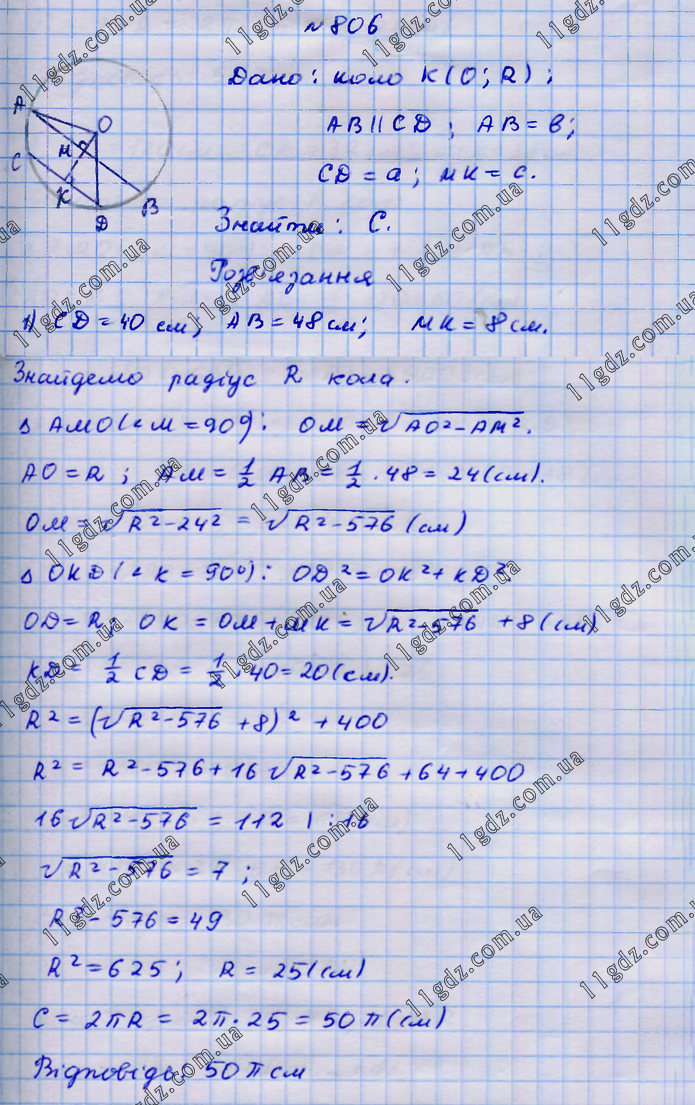 № 806
Дано: коло K(O; R);
AB ∥ CD; AB = в;
CD = a; MK = c.
Знайти: C.
Розв'язання
1) CD = 40 см; AB = 48 см; MK = 8 см.
Знайдемо радіус R кола.
Δ AMO (∠M = 90°): OM = √(AO² - AM²).
AO = R; AM = 1/2 AB = 1/2 · 48 = 24 (см).
OM = √(R² - 24²) = √(R² - 576) (см)
Δ OKD (∠K = 90°): OD² = OK² + KD².
OD = R; OK = OM + MK = √(R² - 576) + 8 (см)
KD = 1/2 CD = 1/2 · 40 = 20 (см).
R² = (√(R² - 576) + 8)² + 400
R² = R² - 576 + 16 √(R² - 576) + 64 + 400
16 √(R² - 576) = 112 | : 16
√(R² - 576) = 7;
R² - 576 = 49
R² = 625; R = 25 (см)
C = 2πR = 2π · 25 = 50π (см)
Відповідь: 50π см
A
O
M
C
K
D
B
11gdz.com.ua